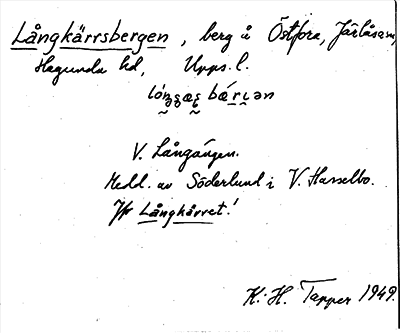 Långkärrsbergen, berg å Östfora, Järlåsa sn,
Hagunda hd, Upps. l.
V. Långängen.
Medd. av Söderlund i V. Hasselbo.
Jfr Långkärret!
K. H. Tapper 1949.